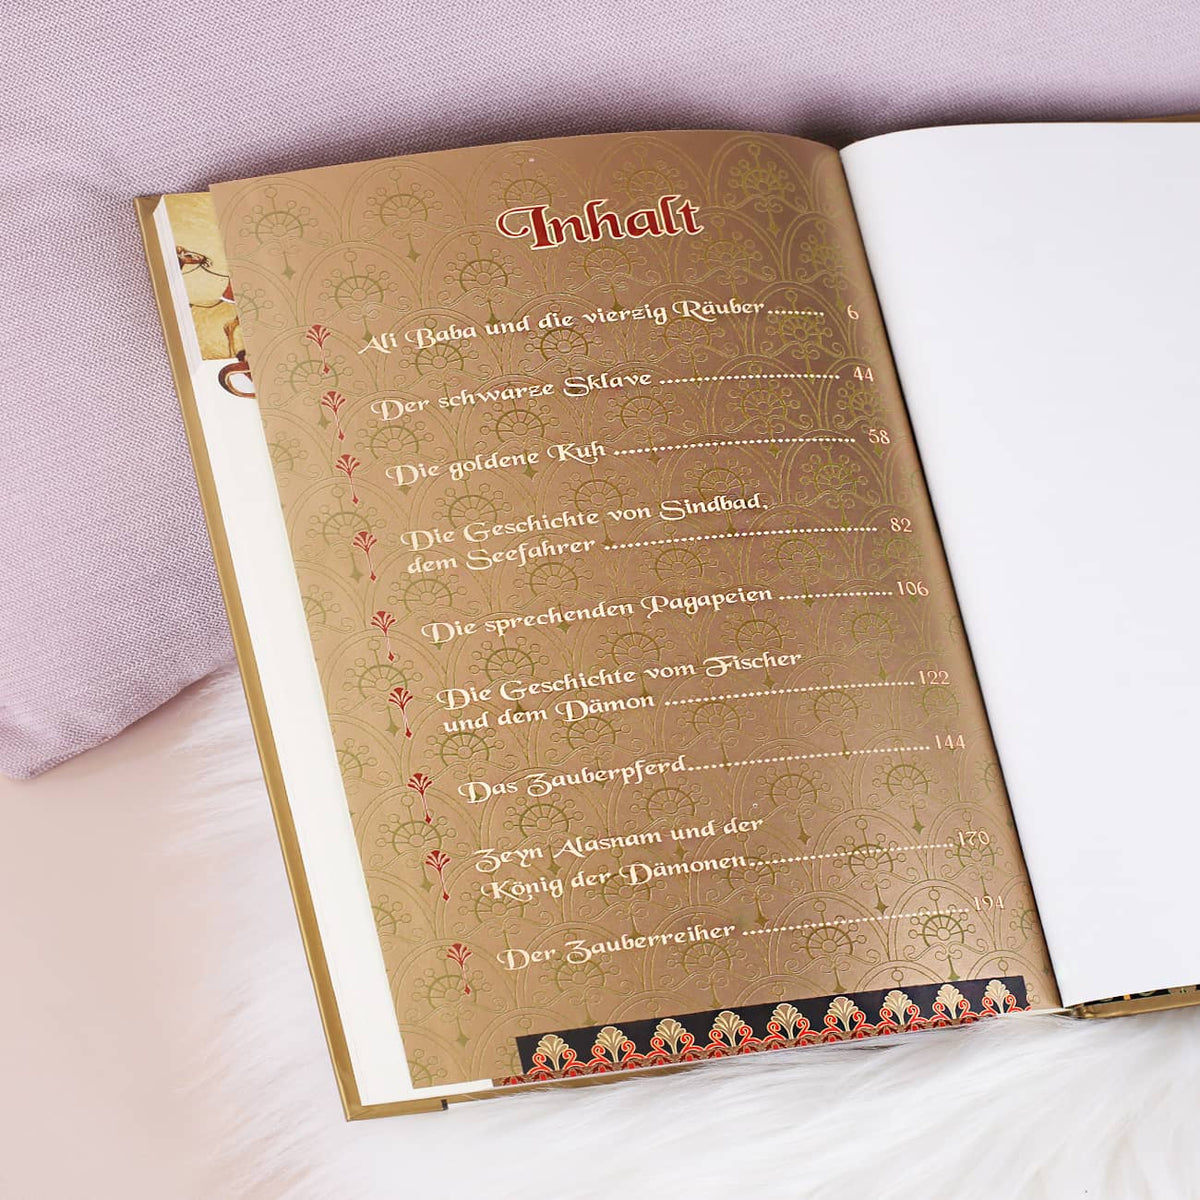 Inhalt
Ali Baba und die vierzig Räuber........ 6
Der schwarze Sklave .......................... 44
Die goldene Kuh ................................... 58
Die Geschichte von Sindbad,
dem Seefahrer ....................................... 82
Die sprechenden Pagapeien ................ 106
Die Geschichte vom Fischer
und dem Dämon .................................... 122
Das Zauberpferd................................... 144
Zeyn Alasnam und der
König der Dämonen............................. 170
Der Zauberreiher ................................. 194